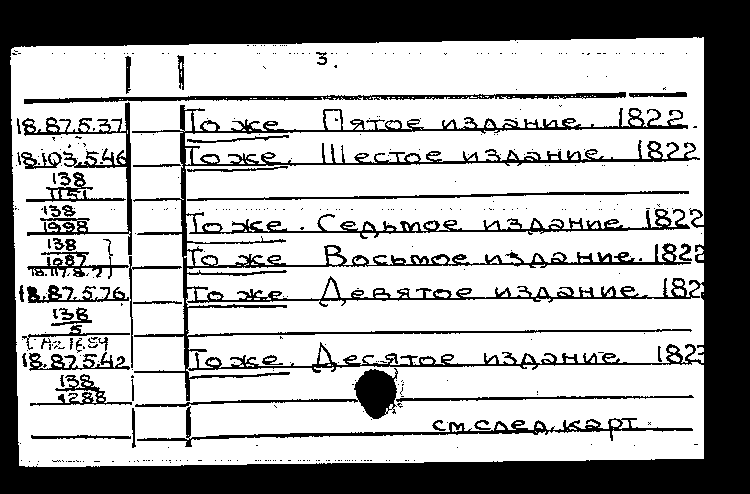 3.
18.87.5.37 То же Пятое издание. 1822.
18.103.5.46 То же. Шестое издание. 1822
138
1151
138
1998 То же. Седьмое издание 1822
138
1087 То же Восьмое издание. 1822
18.117.8.7
18.87.5.76 То же Девятое издание. 182
138
5
18.87.5.42 То же. Десятое издание. 1823
138
4288
см. след. карт.